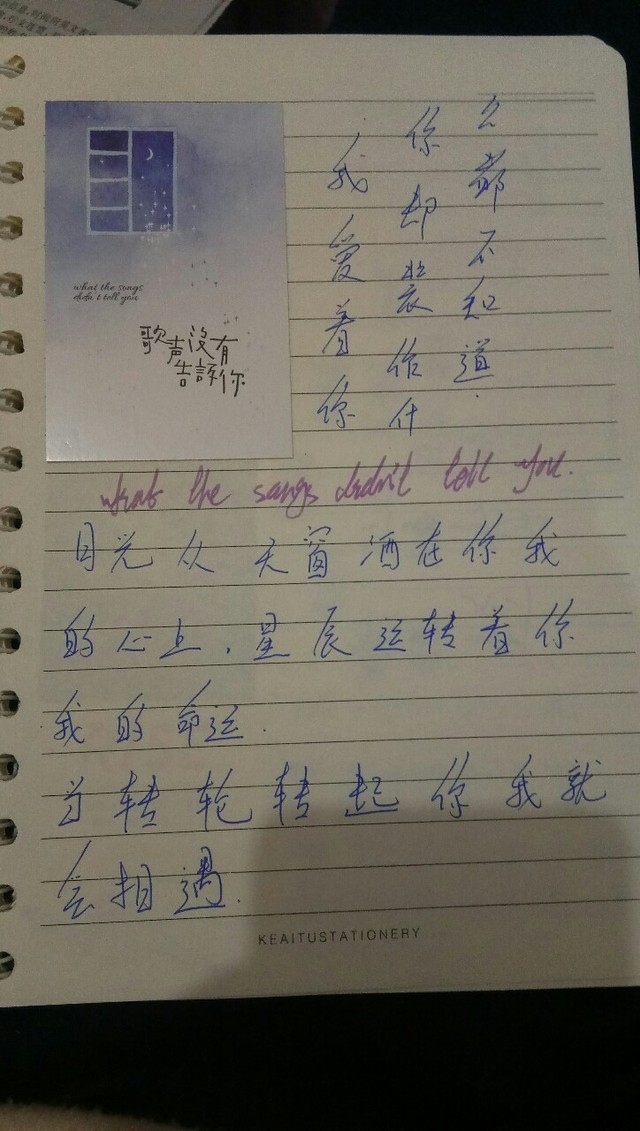 what the songs
didn't tell you
歌声没有
告訴你
我爱着你
你却装作什
么都不知道
what the songs didn't tell you.
月光从天窗洒在你我
的心上，星辰运转着你
我的命运.
当转轮转起你我就
会相遇.
KEAITUSTATIONERY